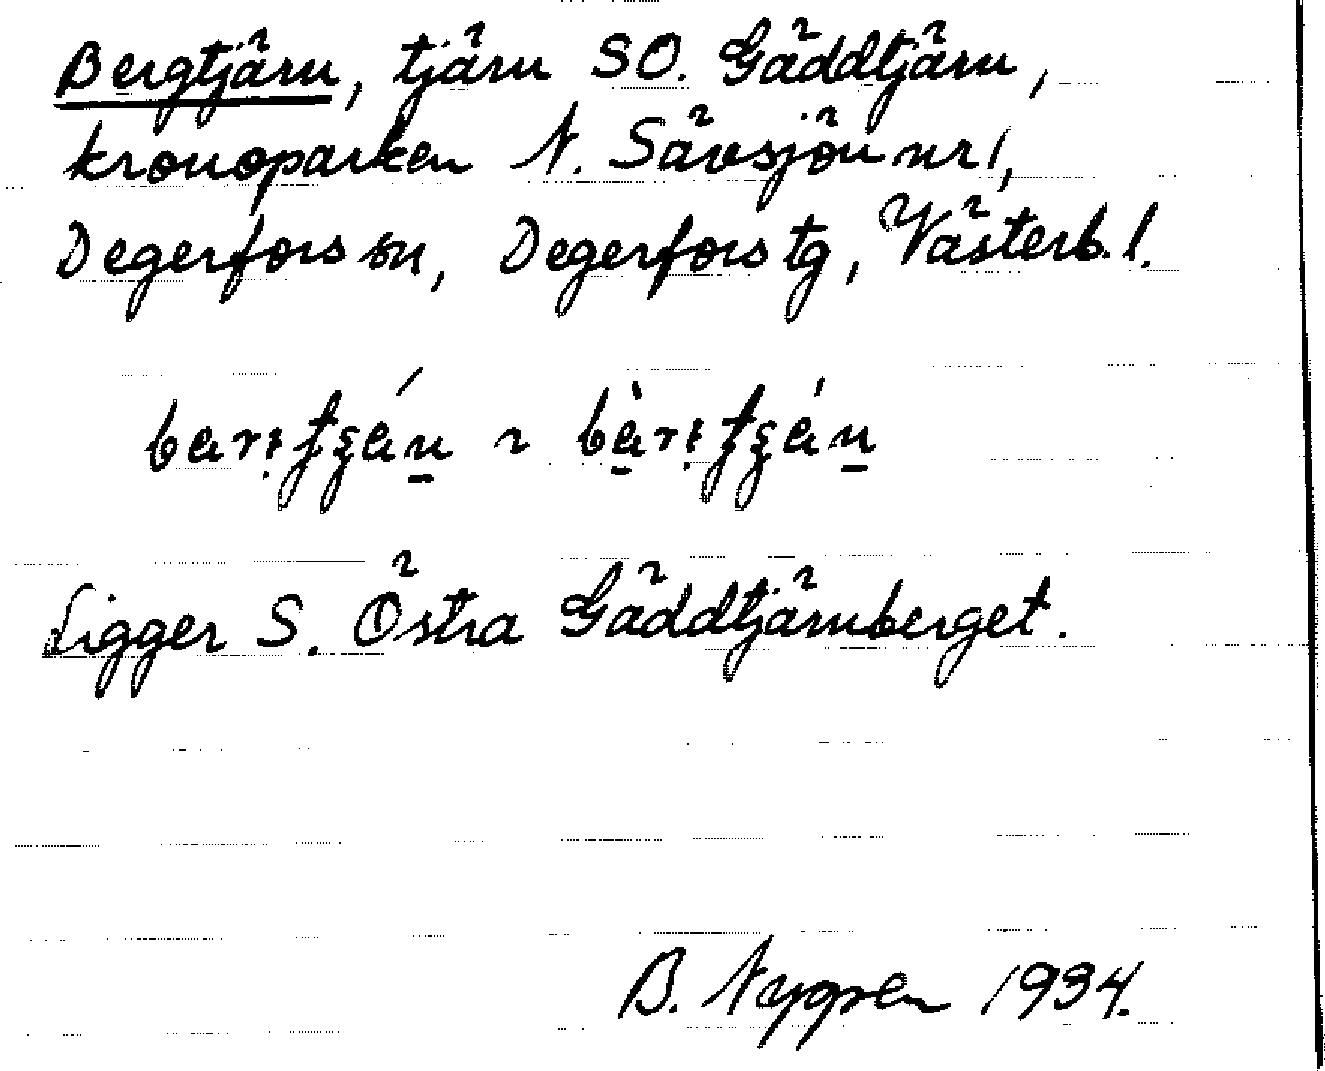 Bergtjärn, tjärn SO. Gäddtjärn,
kronoparken N. Sävsjön nr 1,
Degerfors sn, Degerfors tg, Västerb. l.
Ligger S. Östra Gäddtjärnberget.
B. Nygren 1934.